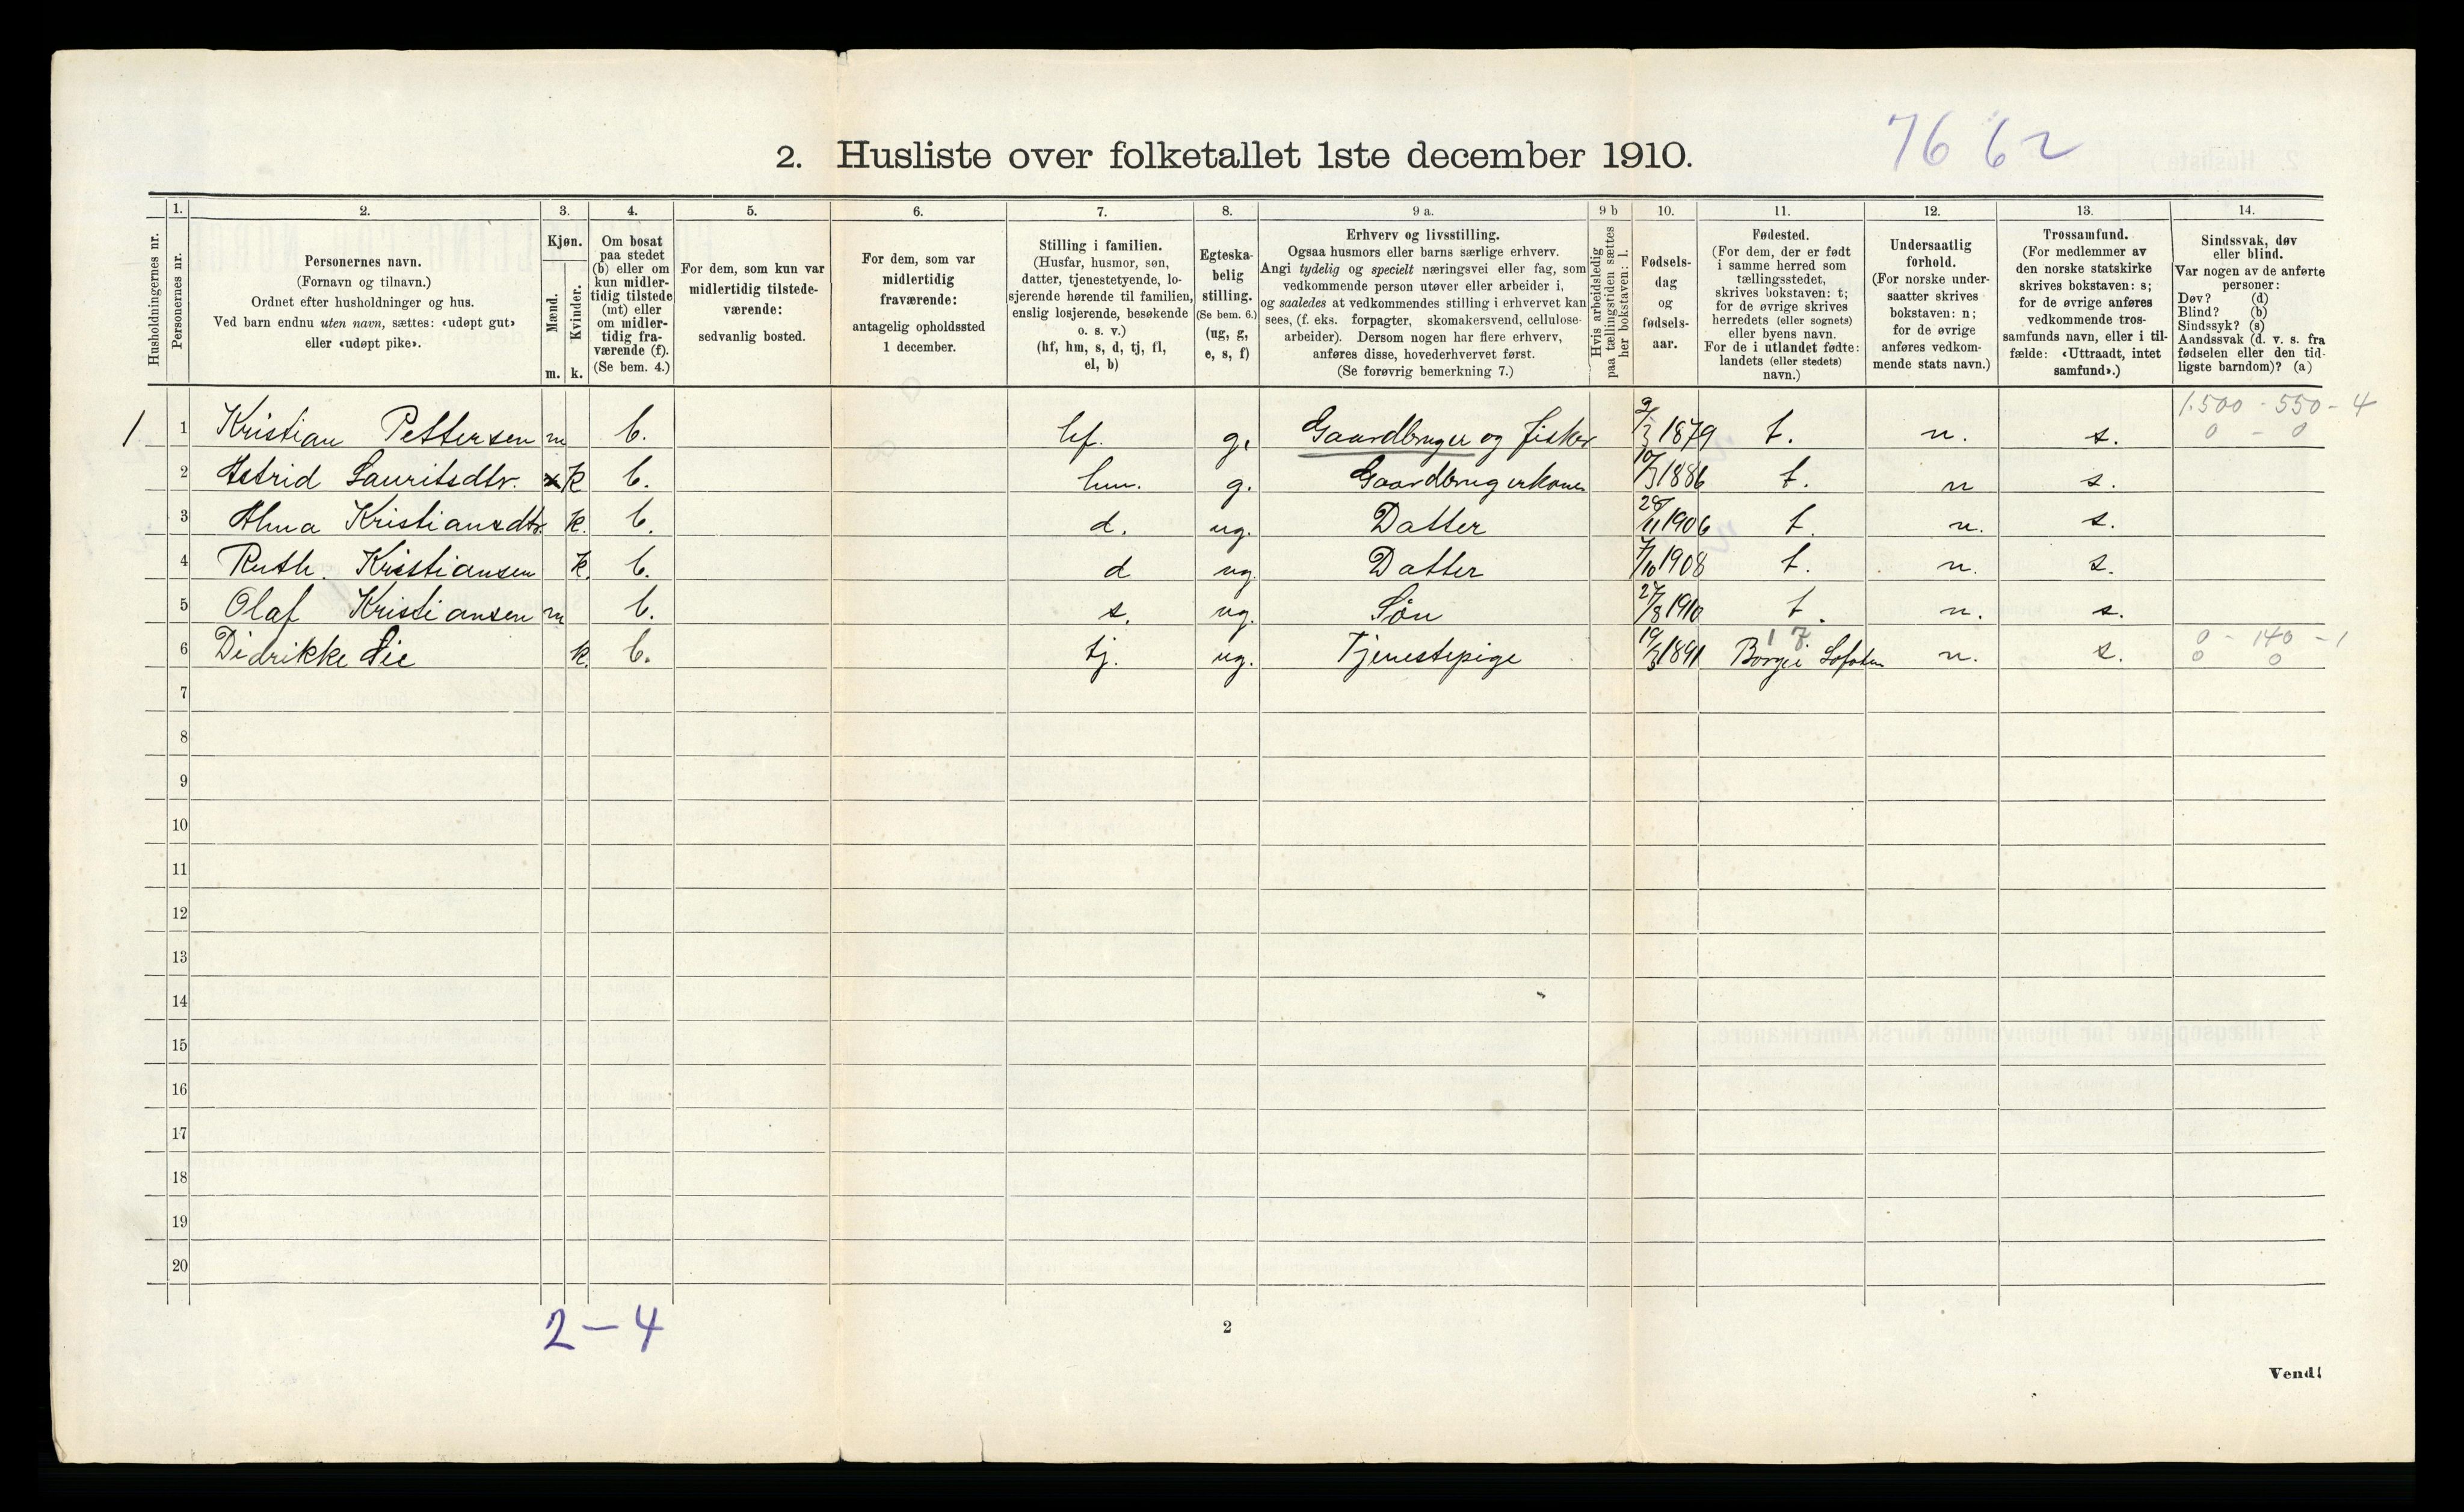 76 62
2. Husliste over folketallet 1ste december 1910.
Husholdningernes nr.
1.
Personernes nr.
2.
Personernes navn.
(Fornavn og tilnavn.)
Ordnet efter husholdninger og hus.
Ved barn endnu uten navn, sættes: «udøpt gut»
eller «udøpt pike».
3.
Kjøn.
Mænd.
Kvinder.
m. k.
4.
Om bosat
paa stedet
(b) eller om
kun midler-
tidig tilstede
(mt) eller
om midler-
tidig fra-
værende (f).
(Se bem. 4.)
5.
For dem, som kun var
midlertidig tilstede-
værende:
sedvanlig bosted.
6.
For dem, som var
midlertidig
fraværende:
antagelig opholdssted
1 december.
7.
Stilling i familien.
(Husfar, husmor, søn,
datter, tjenestetyende, lo-
sjerende hørende til familien,
enslig losjerende, besøkende
o. s. v.)
(hf, hm, s, d, tj, fl,
el, b)
8.
Egteska-
belig
stilling.
(Se bem. 6.)
(ug, g,
e, s, f)
9 a.
Erhverv og livsstilling.
Ogsaa husmors eller barns særlige erhverv.
Angi tydelig og specielt næringsvei eller fag, som
vedkommende person utøver eller arbeider i,
og saaledes at vedkommendes stilling i erhvervet kan
sees, (f. eks. forpagter, skomakersvend, cellulose-
arbeider). Dersom nogen har flere erhverv,
anføres disse, hovederhvervet først.
(Se forøvrig bemerkning 7.)
9 b
Hvis arbeidsledig
paa tællingstiden sættes
her bokstaven: l.
10.
Fødsels-
dag
og
fødsels-
aar.
11.
Fødested.
(For dem, der er født
i samme herred som
tællingsstedet,
skrives bokstaven: t;
for de øvrige skrives
herredets (eller sognets)
eller byens navn.
For de i utlandet fødte:
landets (eller stedets)
navn.)
12.
Undersaatlig
forhold.
(For norske under-
saatter skrives
bokstaven: n;
for de øvrige
anføres vedkom-
mende stats navn.)
13.
Trossamfund.
(For medlemmer av
den norske statskirke
skrives bokstaven: s;
for de øvrige anføres
vedkommende tros-
samfunds navn, eller i til-
fælde: «Uttraadt, intet
samfund».)
14.
Sindssvak, døv
eller blind.
Var nogen av de anførte
personer:
Døv? (d)
Blind? (b)
Sindssyk? (s)
Aandssvak (d. v. s. fra
fødselen eller den tid-
ligste barndom)? (a)
1.500 - 550 - 4
1 1 Kristian Pettersen m b. hf. g. Gaardbruger og fisker 9/3 1879 t. n. s. 0 - 0
2 Astrid Lauritsdtr. k b. hm. g. Gaardbrugerkone 10/3 1886 t. n s.
3 Alma Kristiansdtr. k. b. d. ug. Datter 28/11 1906 t. n. s.
4 Ruth. Kristiansen k. b. d ug. Datter 7/10 1908 t. n. s.
5 Olaf Kristiansen m b. s. ug. Søn 27/8 1910 t. n. s.
17 0 - 140 - 1
6 Didrikke Lie k. b. tj. ug. Tjenestepige 19/3 1891 Borge i Lofoten n. s. 0 0
7
8
9
10
11
12
13
14
15
16
17
18
19
20
2 - 4
2
Vend!